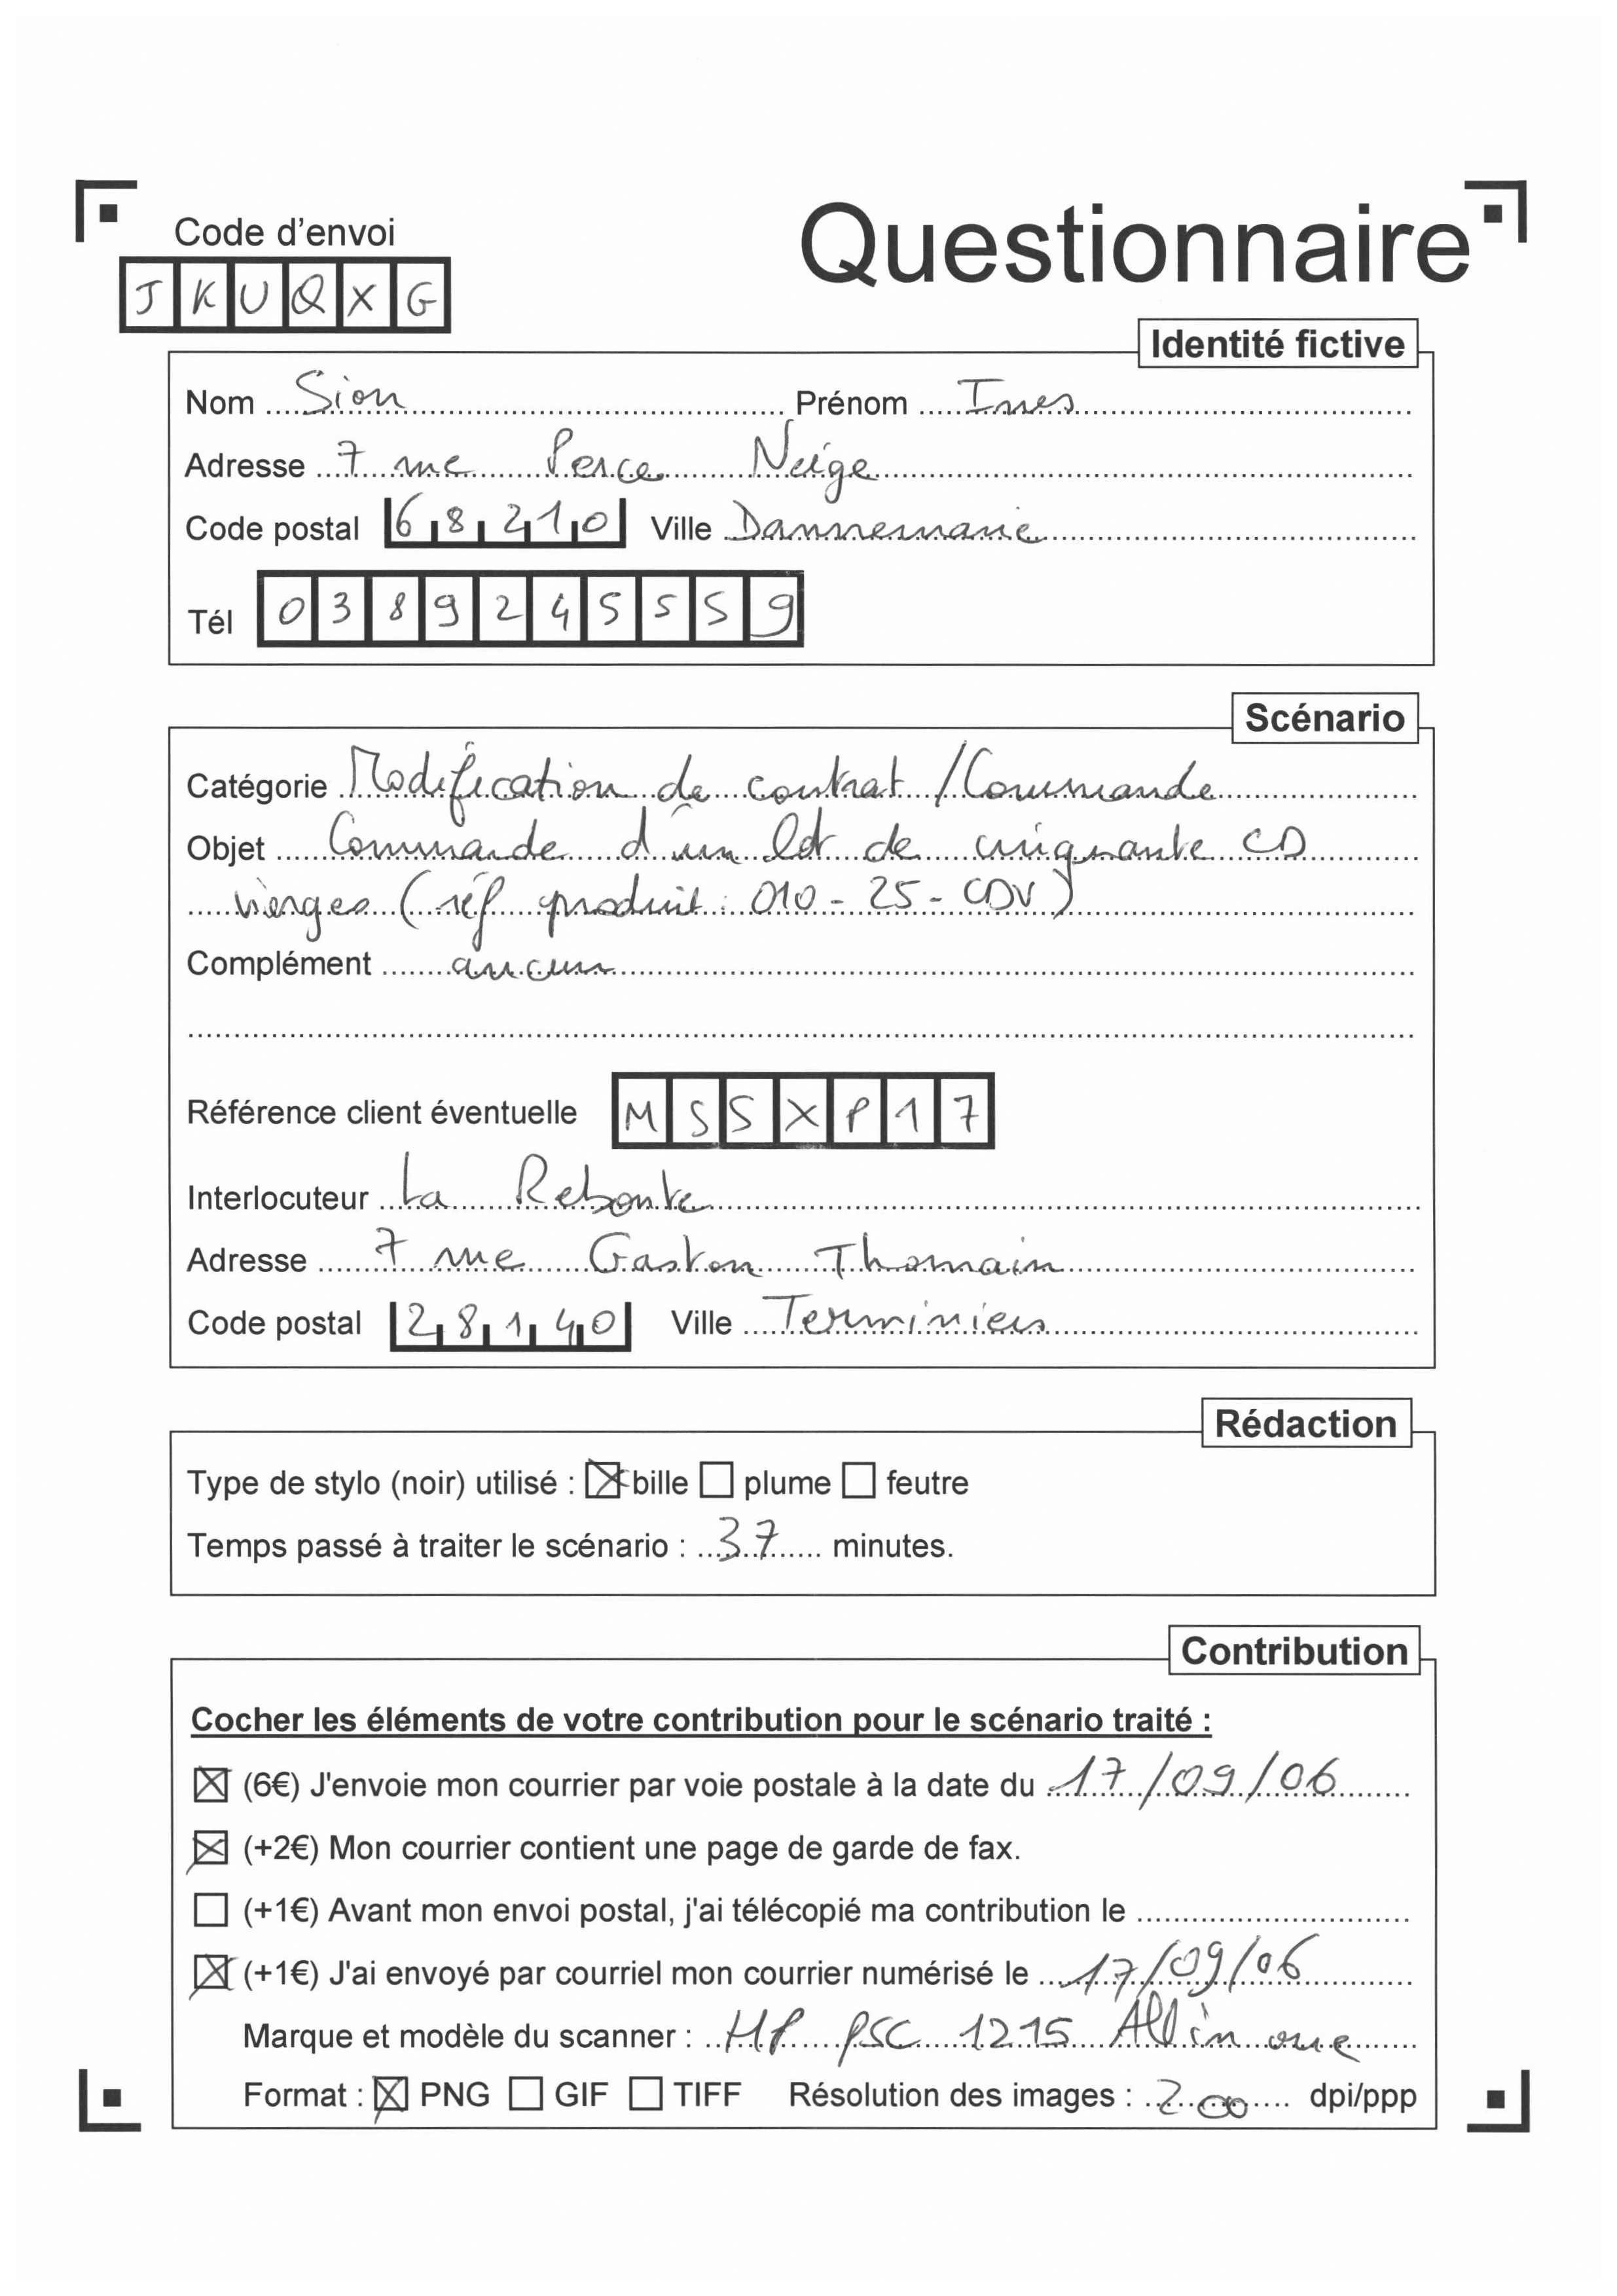 Code d'envoi
Questionnaire
J K U Q X G
Identité fictive
Nom Sion Prénom Ines
Adresse 7 rue Perce Neige
Code postal 68210 Ville Dannemarie
Tél 0389245559
Scénario
Catégorie Modification de contrat / Commande
Objet Commande d'un lot de cinquante CD
vierges (réf produit : 010 - 25 - CDV)
Complément aucun
Référence client éventuelle M S S X P 1 7
Interlocuteur La Reboute
Adresse 7 rue Gaston Thomain
Code postal 28140 Ville Terminiers
Rédaction
Type de stylo (noir) utilisé : ☒ bille ☐ plume ☐ feutre
Temps passé à traiter le scénario : 37 minutes.
Contribution
Cocher les éléments de votre contribution pour le scénario traité :
☒ (6€) J'envoie mon courrier par voie postale à la date du 17/09/06
☒ (+2€) Mon courrier contient une page de garde de fax.
☐ (+1€) Avant mon envoi postal, j'ai télécopié ma contribution le
☒ (+1€) J'ai envoyé par courriel mon courrier numérisé le 17/09/06
Marque et modèle du scanner : HP psc 1215 All in one
Format : ☒ PNG ☐ GIF ☐ TIFF Résolution des images : 200 dpi/ppp